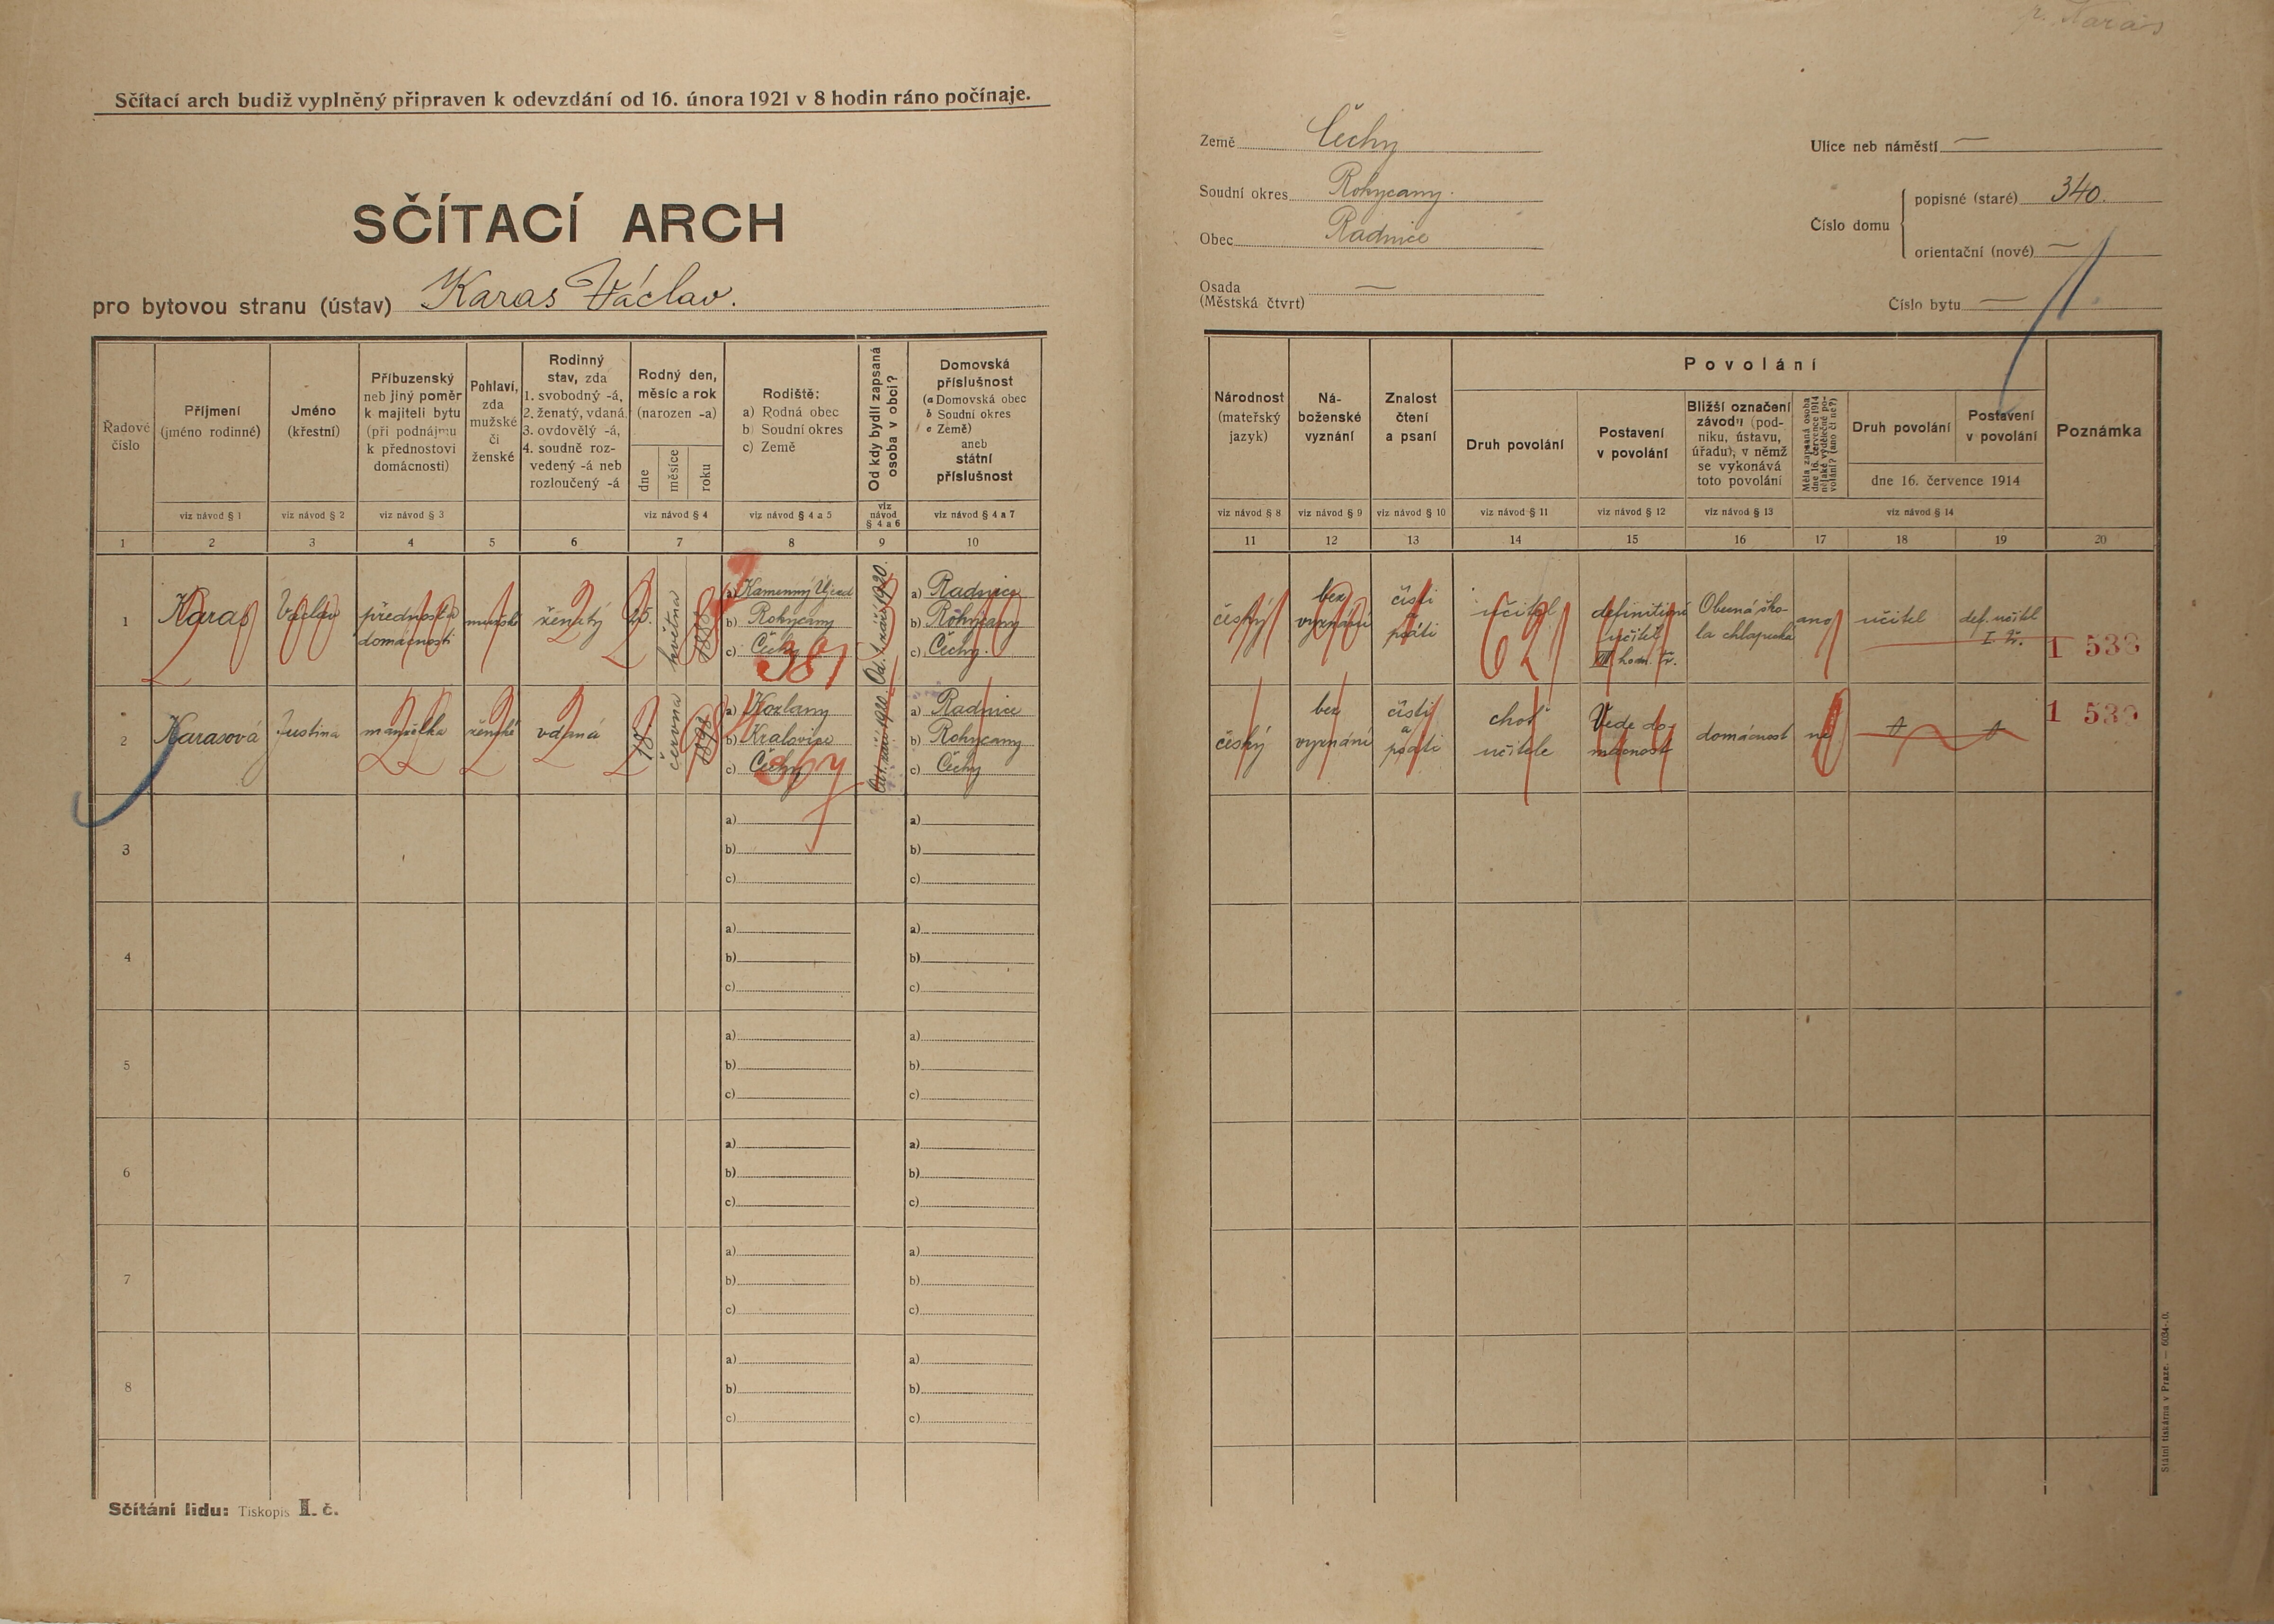 r. Karas
Sčítací arch budiž vyplněný připraven k odevzdání od 16. února 1921 v 8 hodin ráno počínaje.
SČÍTACÍ ARCH
pro bytovou stranu (ústav) Karas Václav.
Země Čechy
Soudní okres Rokycany.
Obec Radnice
Osada —
(Městská čtvrť)
Ulice neb náměstí —
Číslo domu
popisné (staré) 340.
orientační (nové) —
Číslo bytu —
Řadové
číslo
Příjmení
(jméno rodinné)
Jméno
(křestní)
Příbuzenský
neb jiný poměr
k majiteli bytu
(při podnájmu
k přednostovi
domácnosti)
Pohlaví,
zda
mužské
či
ženské
Rodinný
stav, zda
1. svobodný -á,
2. ženatý, vdaná,
3. ovdovělý -á,
4. soudně roz-
vedený -á neb
rozloučený -á
Rodný den,
měsíc a rok
(narozen -a)
dne
měsíce
roku
Rodiště:
a) Rodná obec
b) Soudní okres
c) Země
Od kdy bydlí zapsaná
osoba v obci?
Domovská
příslušnost
(a Domovská obec
b Soudní okres
c Země)
aneb
státní
příslušnost
Národnost
(mateřský
jazyk)
Ná-
boženské
vyznání
Znalost
čtení
a psaní
Povolání
Druh povolání
Postavení
v povolání
Bližší označení
závodu (pod-
niku, ústavu,
úřadu), v němž
se vykonává
toto povolání
Měla zapsaná osoba
dne 16. července 1914
nějaké výdělečné po-
volání? (ano či ne?)
Druh povolání
Postavení
v povolání
dne 16. července 1914
Poznámka
viz návod § 1
viz návod § 2
viz návod § 3
viz návod § 4
viz návod § 4 a 5
viz
návod
§ 4 a 6
viz návod § 4 a 7
viz návod § 8
viz návod § 9
viz návod § 10
viz návod § 11
viz návod § 12
viz návod § 13
viz návod § 14
1 2 3 4 5 6 7 8 9 10 11 12 13 14 15 16 17 18 19 20
1
Karas
Václav
přednosta
domácnosti
mužské
ženatý
25.
května
1888
a) Kamenný Újezd
b) Rokycany
c) Čechy
381
Od 1. září 1920.
a) Radnice
b) Rokycany
c) Čechy.
český
bez
vyznání
čísti
a
psáti
učitel
621
definitivní
učitel
III. hod. tř.
Obecná ško-
la chlapecká
ano
učitel
def. učitel
I. tř.
1 533
2
Karasová
Justina
manželka
ženské
vdaná
18.
června
a) Kozlany
b) Kralovice
c) Čechy
Od 1. září 1920.
a) Radnice
b) Rokycany
c) Čechy
český
bez
vyznání
čísti
a
psáti
choť
učitele
Vede do-
mácnost
domácnost
ne
1 533
3
a)
b)
c)
a)
b)
c)
4
a)
b)
c)
a)
b)
c)
5
a)
b)
c)
a)
b)
c)
6
a)
b)
c)
a)
b)
c)
7
a)
b)
c)
a)
b)
c)
8
a)
b)
c)
a)
b)
c)
Sčítání lidu: Tiskopis I. č.
Státní tiskárna v Praze. — 6034-.0.